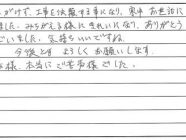 がけず、工事を依頼する事になり、大変お世話に
ました。みちがえる様にきれいになり、ありがとう
ざいました。気持ちいいですね。
今後とも よろしくお願いします。
様、本当にご苦労様でした。